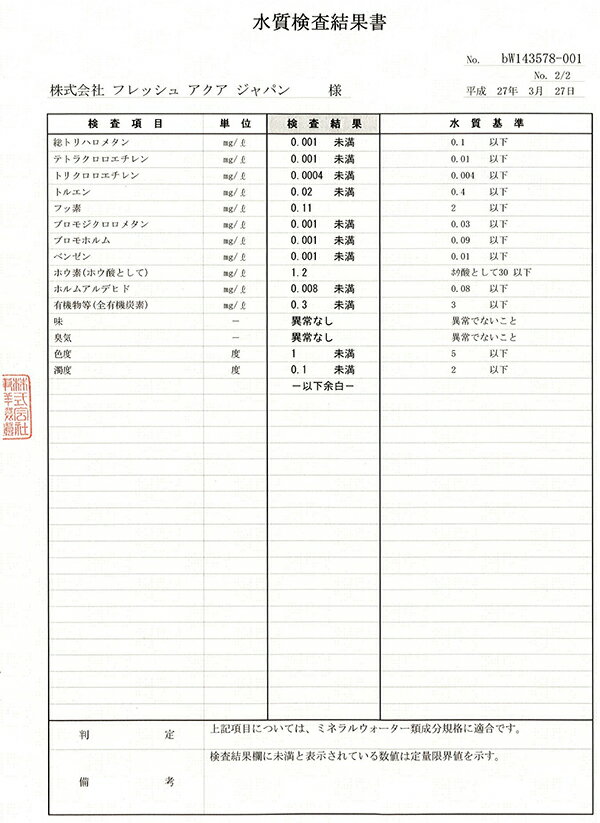 水質検査結果書
No. bW143578-001
No. 2/2
株式会社 フレッシュ アクア ジャパン 様
平成 27年 3月 27日
検査項目 単位 検査結果 水質基準
総トリハロメタン mg/ℓ 0.001 未満 0.1 以下
テトラクロロエチレン mg/ℓ 0.001 未満 0.01 以下
トリクロロエチレン mg/ℓ 0.0004 未満 0.004 以下
トルエン mg/ℓ 0.02 未満 0.4 以下
フッ素 mg/ℓ 0.11 2 以下
ブロモジクロロメタン mg/ℓ 0.001 未満 0.03 以下
ブロモホルム mg/ℓ 0.001 未満 0.09 以下
ベンゼン mg/ℓ 0.001 未満 0.01 以下
ホウ素(ホウ酸として) mg/ℓ 1.2 ホウ酸として30 以下
ホルムアルデヒド mg/ℓ 0.008 未満 0.08 以下
有機物等(全有機炭素) mg/ℓ 0.3 未満 3 以下
味 － 異常なし 異常でないこと
臭気 － 異常なし 異常でないこと
色度 度 1 未満 5 以下
濁度 度 0.1 未満 2 以下
－以下余白－
判定 上記項目については、ミネラルウォーター類成分規格に適合です。
備考 検査結果欄に未満と表示されている数値は定量限界値を示す。
株式会社